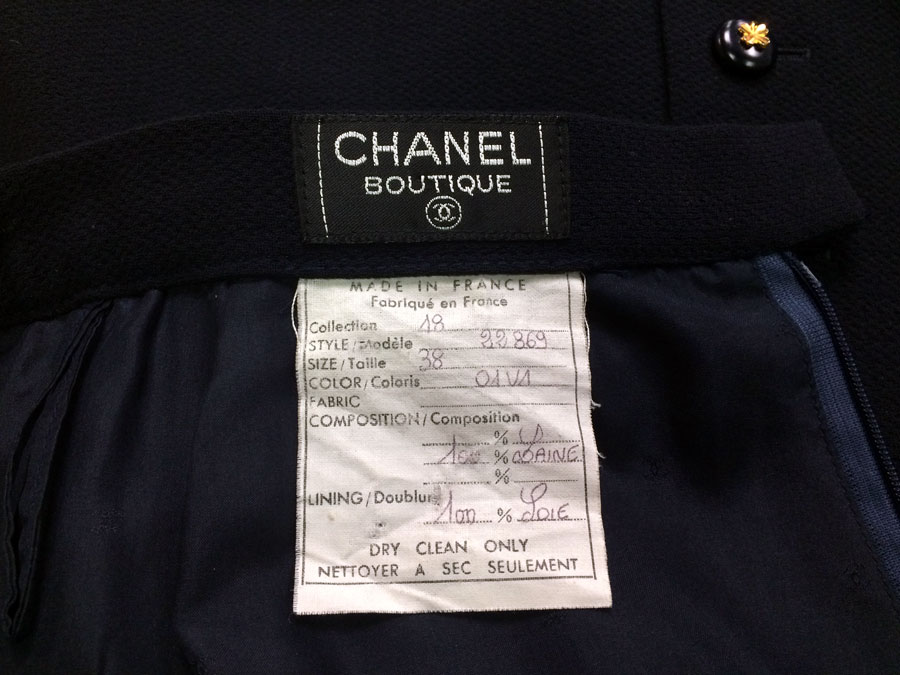 CHANEL
BOUTIQUE
MADE IN FRANCE
Fabriqué en France
Collection 18
STYLE/Modèle 22869
SIZE/Taille 38
COLOR/Coloris 01V1
FABRIC
COMPOSITION/Composition
%
100 % LAINE
%
LINING/Doublure 100 % SOIE
DRY CLEAN ONLY
NETTOYER A SEC SEULEMENT